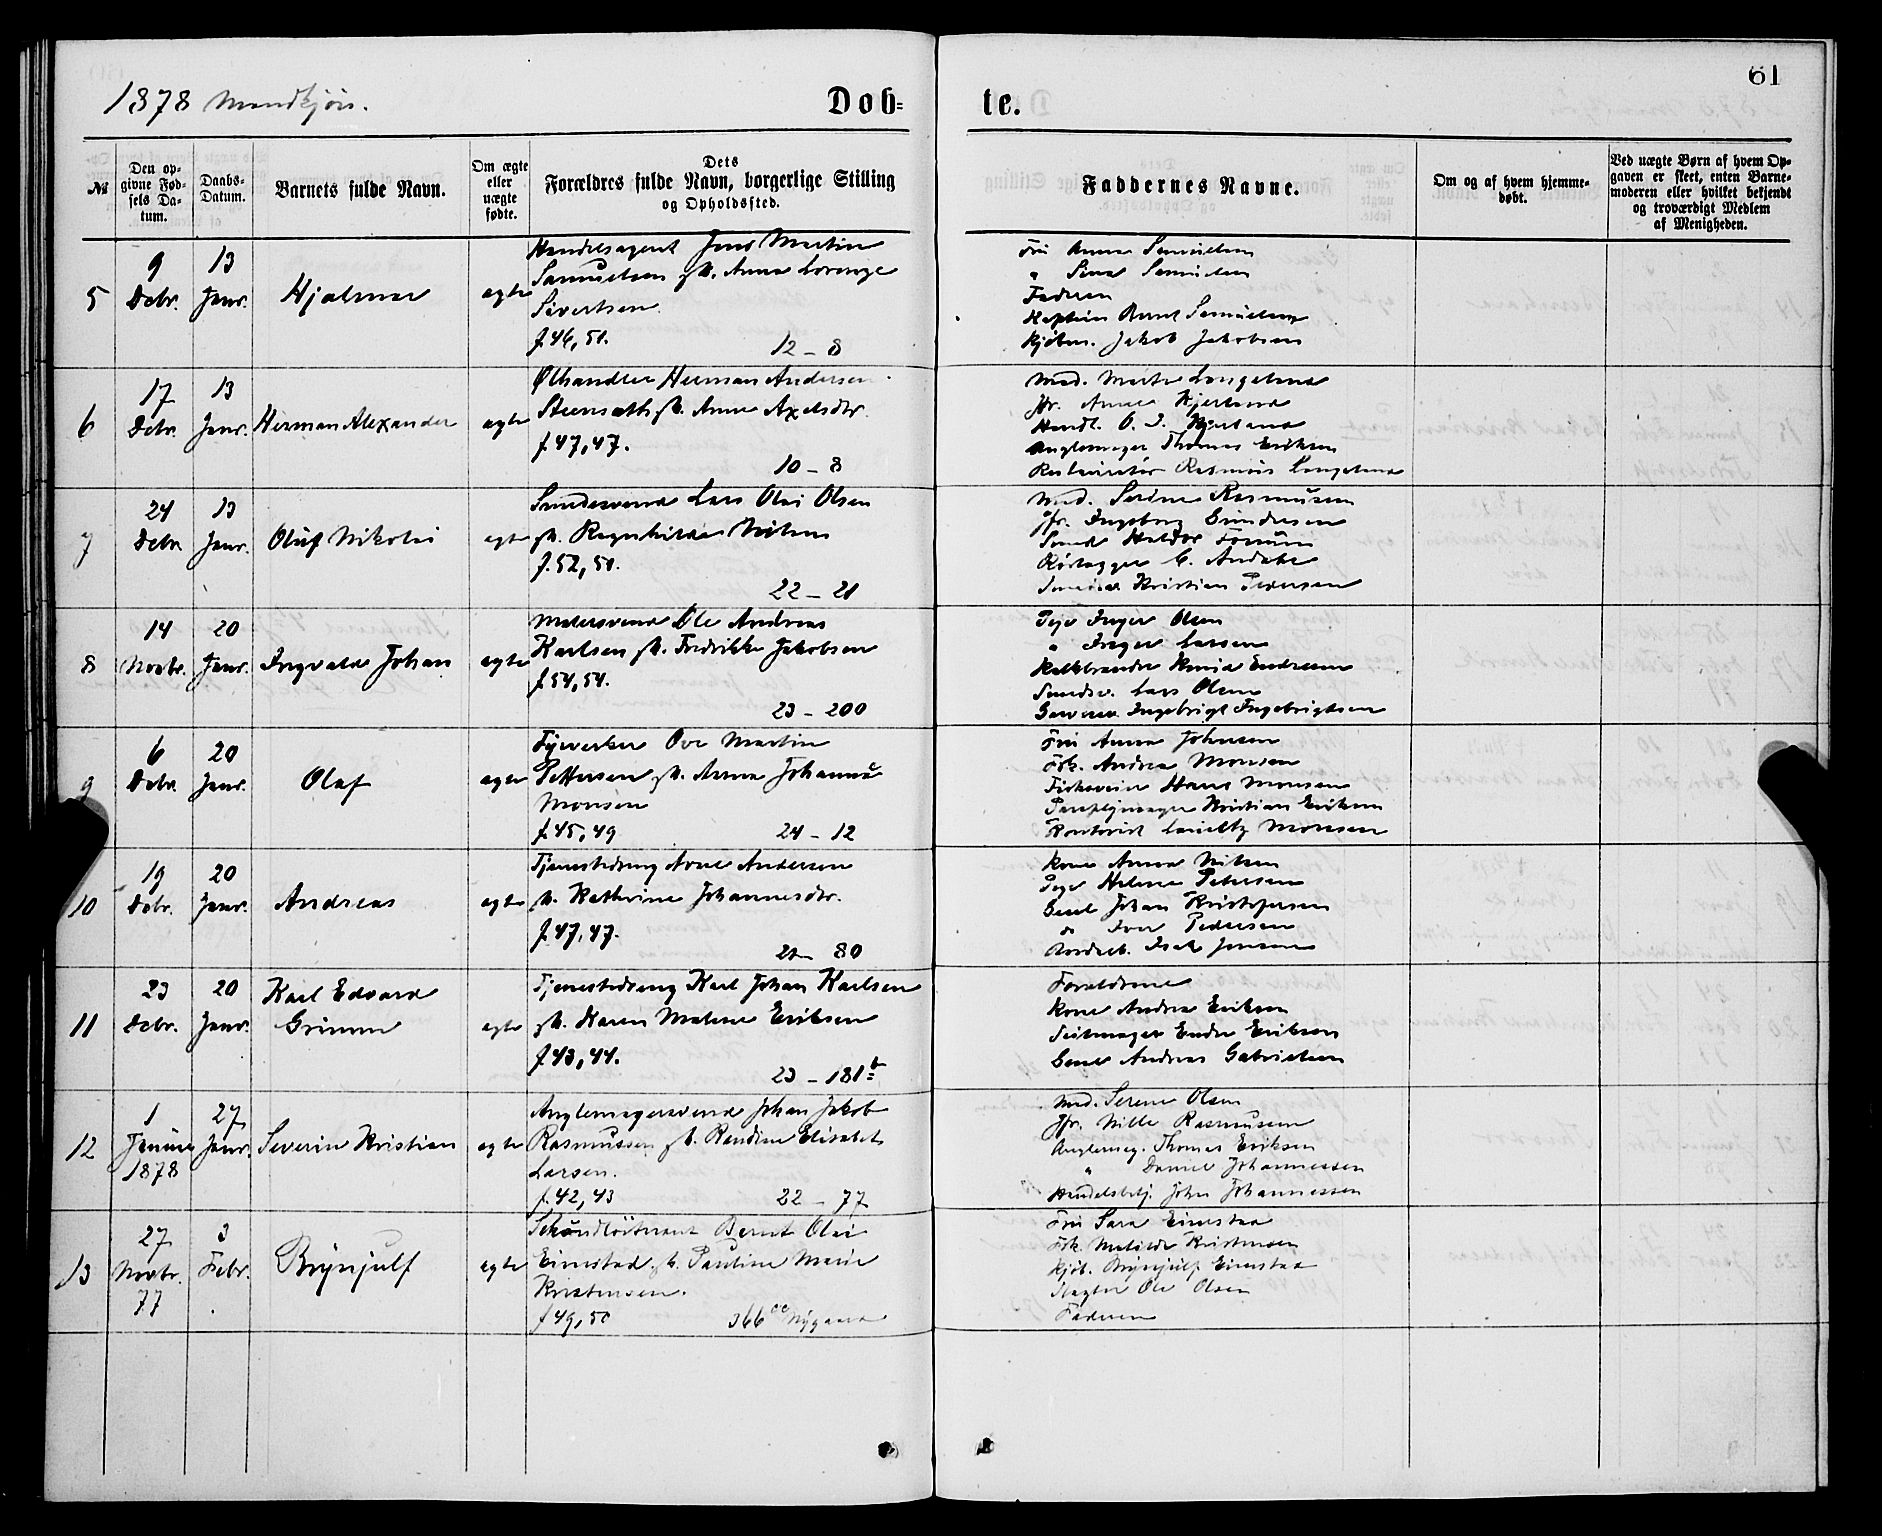 61
1878 Mandkjøn.
Døb-
te.
№
Den op-
givne Fød-
sels Da-
tum.
Daabs-
Datum.
Barnets fulde Navn.
Om ægte
eller
uægte
fødte.
Dets
Forældres fulde Navn, borgerlige Stilling
og Opholdssted.
Faddernes Navne.
Om og af hvem hjemme-
døbt.
Ved uægte Børn af hvem Op-
gaven er skeet, enten Barne-
moderen eller hvilket bekjendt
og troværdigt Medlem
af Menigheden.
5
9
Debr.
13
Janr.
Hjalmar
ægte
Handelsagent Jens Martin
Samuelsen g/h. Anna Lorenze
Sivertsen
f. 46, 51.
12 - 8
Fru Anna Samuelsen
" Sina Samuelsen
Faderen
Kaptein Bernt Samuelsen
Kjøbm. Jakob Jakobsen
6
17
Debr.
13
Janr.
Herman Alexander
ægte
Ølhandler Herman Andersen
Steensæth g/h. Anne Axelsdtr.
f. 47, 47.
10 - 8
Mad. Marta Langeland
Jfr. Anne Hjertnes
Handl. O. J.
Anglemager Thomas Eriksen
Restauratør Rasmus Langeland
7
24
Debr.
13
Janr.
Oluf Nikolai
ægte
Smedesvend Lars Olai Olsen
g/h. Ragnhilda Nilsen
f. 52, 51.
22 - 21
Mad. Serine Rasmussen
Jfr. Ingeborg Gundersen
Smed Haldor
C.
Smedsv. Kristian Pedersen
8
14
Novbr.
20
Janr.
Ingvald Johan
ægte
Malersvend Ole Andreas
Karlsen g/h. Fredrikke Jakobsen
f. 54, 54.
23 - 200
Pige Inger Olsen
" Inger Larsen
Kalkbrænder Knud Endresen
Smedsv. Lars Olsen
Garversv. Ingebrigt Ingebrigtsen
9
6
Debr.
20
Janr.
Olaf
ægte
Fyrverker Ove Martin
Pettersen g/h. Anna Johanne
Monsen
f. 45, 49
24 - 12
Fru Anna Johnsen
Frk. Andrea Monsen
Hans Monsen
Paraplymager Kristian Eriksen
Kontorist Monsen
10
19
Debr.
20
Janr.
Andreas
ægte
Tjenestedreng Arne Andersen
g/h. Kathrine Johannesdtr.
f. 47, 47.
21 - 80
Kone Anna Nilsen
Pige Helene Petersen
Johan Kristofersen
" Iver Pedersen
Isak Jensen
11
23
Debr.
20
Janr.
Karl Edvard
Grimm
ægte
Tjenestedreng Karl Johan Karlsen
g/h. Karen Malene Eriksen
f. 43, 44.
23 - 181 b
Forældrene
Kone Andrea Eriksen
Seilmager Endre Eriksen
Andreas Gabrielsen
12
1
Januar
1878
27
Janr.
Severin Kristian
ægte
Anglemagersvend Johan Jakob
Rasmussen g/h. Randine Elisabet
Larsen.
f. 42, 43
22 - 77
Mad. Serene Olsen
Jfr. Nille Rasmussen
Anglemag. Thomas Eriksen
" Daniel Johannessen
Handelsbetj. John Johannessen
13
27
Novbr.
77
3
Febr.
Brynjulf
ægte
Sekondløitnant Bernt Olai
Einestad g/h. Pauline Marie
Kristensen.
f. 49, 50
366 Nygaard
Fru Sara Einestad
Frk. Matilde Kristensen
Kjøb. Brynjulf Einestad
Slagter Ole Olsen
Faderen